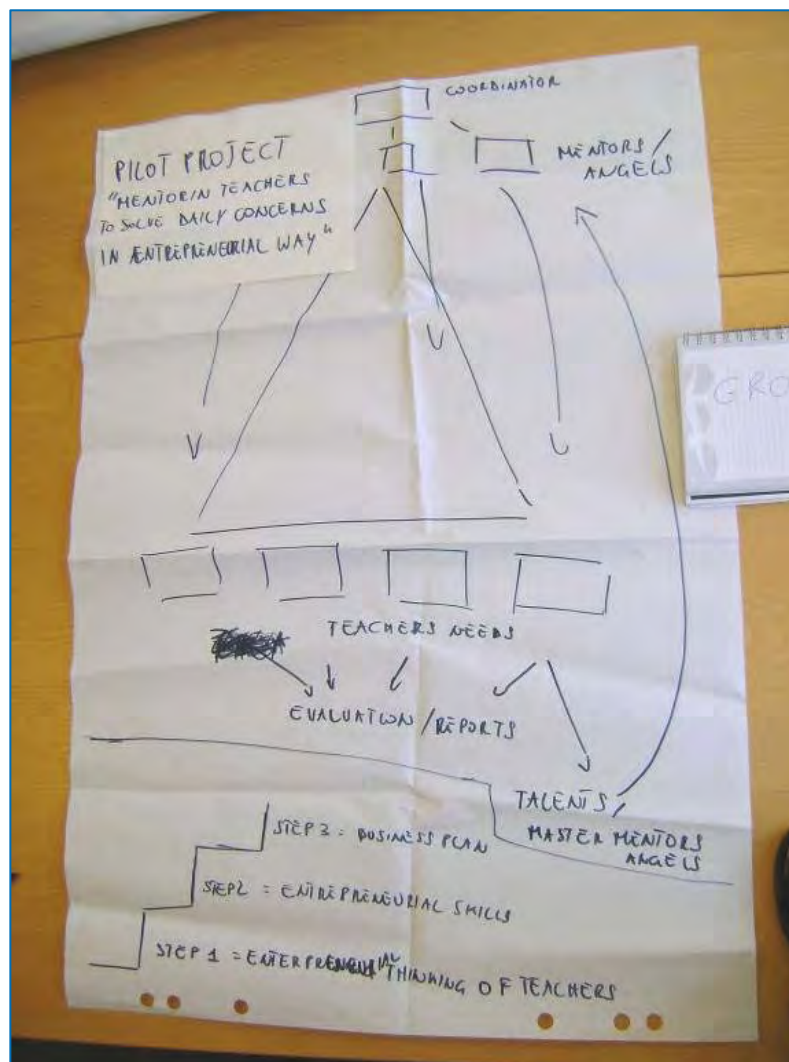 COORDINATOR
PILOT PROJECT
"MENTORIN TEACHERS
TO SOLVE DAILY CONCERNS
IN ENTREPRENEURIAL WAY"
MENTORS/
ANGELS
GRO
TEACHERS NEEDS
EVALUATION/REPORTS
TALENTS/
MASTER MENTORS
ANGELS
STEP 3 = BUSINESS PLAN
STEP 2 = ENTREPRENEURIAL SKILLS
STEP 1 = ENTERPRENEURIAL THINKING OF TEACHERS